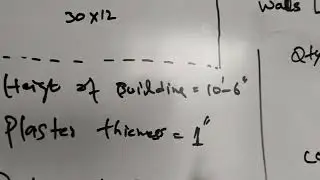 30x12
Walls
Qty
Height of Building = 10'-6"
Plaster thicness = 1"